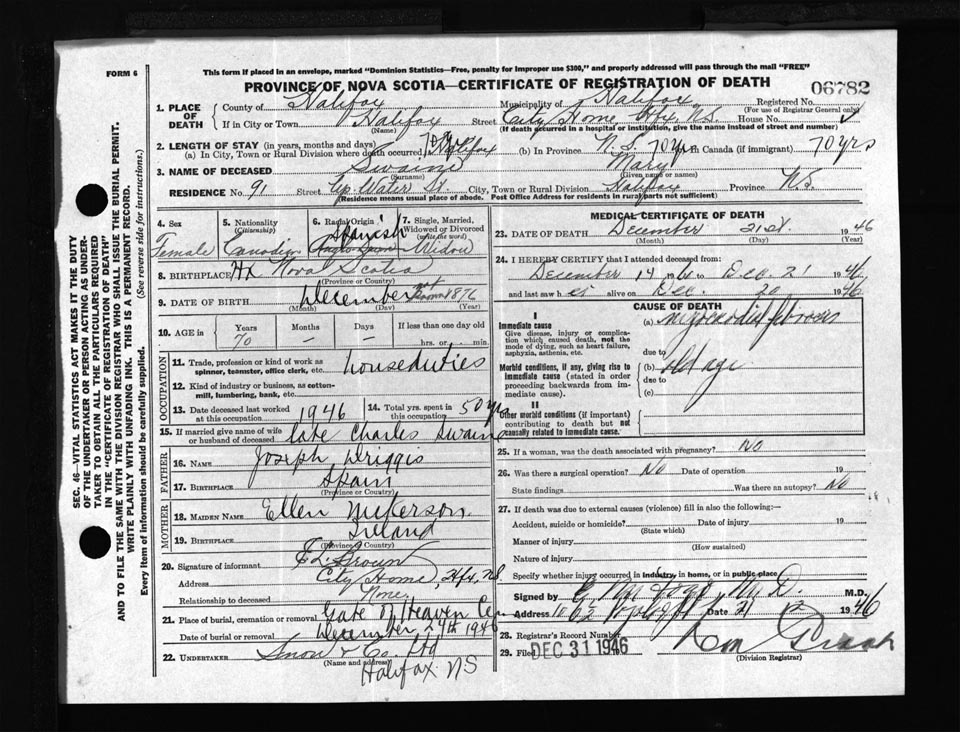 FORM 6
This form if placed in an envelope, marked "Dominion Statistics—Free, penalty for improper use $300," and properly addressed will pass through the mail "FREE"
PROVINCE OF NOVA SCOTIA—CERTIFICATE OF REGISTRATION OF DEATH
06782
1. PLACE OF DEATH
County of Halifax Municipality of Halifax Registered No.
(For use of Registrar General only)
If in City or Town Halifax Street City Home, Hfx, N.S. House No.
(Name) (If death occurred in a hospital or institution, give the name instead of street and number)
2. LENGTH OF STAY (in years, months and days)
(a) In City, Town or Rural Division where death occurred Halifax (b) In Province N.S. 70 yrs In Canada (if immigrant) 70 yrs
3. NAME OF DECEASED Swaine Mary
(Surname) (Given name or names)
RESIDENCE No. 91 Street Up. Water St. City, Town or Rural Division Halifax Province N.S.
(Residence means usual place of abode. Post Office Address for residents in rural parts not sufficient)
4. Sex Female
5. Nationality (Citizenship) Canadian
6. Racial Origin Spanish
7. Single, Married, Widowed or Divorced (write the word) Widow
8. BIRTHPLACE Hx Nova Scotia
(Province or Country)
9. DATE OF BIRTH December not known 1876
(Month) (Day) (Year)
10. AGE in Years 70 Months — Days — If less than one day old hrs. or min.
OCCUPATION
11. Trade, profession or kind of work as spinner, teamster, office clerk, etc. houseduties
12. Kind of industry or business, as cotton-mill, lumbering, bank, etc.
13. Date deceased last worked at this occupation 1946
14. Total yrs. spent in this occupation 50 yrs
15. If married give name of wife or husband of deceased late Charles Swaine
FATHER
16. NAME Joseph Driggis
17. BIRTHPLACE Spain
(Province or Country)
MOTHER
18. MAIDEN NAME Ellen
19. BIRTHPLACE Ireland
(Province or Country)
20. Signature of informant E L Brown
Address City Home Hfx, N.S.
Relationship to deceased None
21. Place of burial, cremation or removal Gate of Heaven Cem
Date of burial or removal December 24th 1946
22. UNDERTAKER Snow & Co. Ltd
(Name and address)
Halifax NS
MEDICAL CERTIFICATE OF DEATH
23. DATE OF DEATH December 21st 1946
(Month) (Day) (Year)
24. I HEREBY CERTIFY that I attended deceased from:
December 14 to Dec. 21 1946
and last saw her alive on Dec. 20 1946
CAUSE OF DEATH
I
Immediate cause
Give disease, injury or complication which caused death, not the mode of dying, such as heart failure, asphyxia, asthenia, etc.
(a) myocardial fibrosis
due to
Morbid conditions, if any, giving rise to immediate cause (stated in order proceeding backwards from immediate cause).
(b) old age
due to
(c)
II
Other morbid conditions (if important) contributing to death but not causally related to immediate cause.
25. If a woman, was the death associated with pregnancy? No
26. Was there a surgical operation? No Date of operation 19
State findings Was there an autopsy? No
27. If death was due to external causes (violence) fill in also the following:—
Accident, suicide or homicide? Date of injury 19
(State which)
Manner of injury
(How sustained)
Nature of injury
Specify whether injury occurred in industry, in home, or in public place
Signed by M.D.
Address Date 21 1946
28. Registrar's Record Number
29. Filed DEC 31 1946
(Division Registrar)
SEC. 46—VITAL STATISTICS ACT MAKES IT THE DUTY OF THE UNDERTAKER OR PERSON ACTING AS UNDERTAKER TO OBTAIN ALL THE PARTICULARS REQUIRED IN THE "CERTIFICATE OF REGISTRATION OF DEATH" AND TO FILE THE SAME WITH THE DIVISION REGISTRAR WHO SHALL ISSUE THE BURIAL PERMIT.
WRITE PLAINLY WITH UNFADING INK. THIS IS A PERMANENT RECORD.
Every item of information should be carefully supplied. (See reverse side for instructions.)